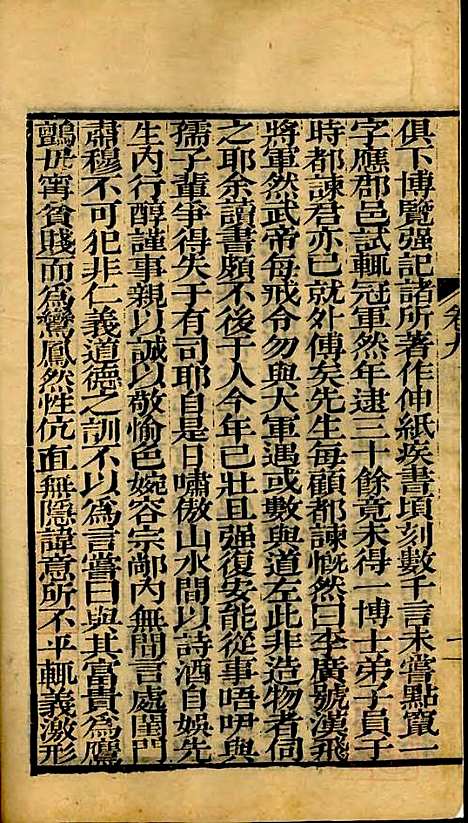 俱下博覽强記諸所著作伸紙疾書頃刻數千言未嘗點竄一
字應郡邑試輒冠軍然年逮三十餘竟未得一博士弟子員于
時都諫君亦已就外傅矣先生每顧都諫慨然曰李廣號漢飛
將軍然武帝每戒令勿與大軍遇或數與道左此非造物者伺
之耶余讀書頗不後于人今年已壯且强復安能從事唔咿與
孺子輩爭得失于有司耶自是日嘯傲山水間以詩酒自娛先
生內行醇謹事親以誠以敬愉色婉容宗鄰內無間言處閨門
肅穆不可犯非仁義道德之訓不以爲言嘗曰與其富貴爲鷹
鸇毋寧貧賤而爲鸞鳳然性伉直無隱諱意所不平輒義激形
卷九